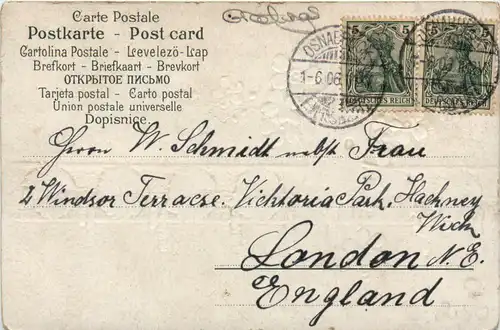 Carte Postale
Postkarte - Post card
Cartolina Postale - Levelező-Lap
Brefkort - Briefkaart - Brevkort
ОТКРЫТОЕ ПИСЬМО
Tarjeta postal - Carto postal
Union postale universelle
Dopisnice.
5 5 5
DEUTSCHES REICH DEUTSCHES REICH
1-6.06.
Herrn W. Schmidt nebst Frau
2 Windsor Terracse. Vichtoria Park, Hackney
Wick
London N.E.
England